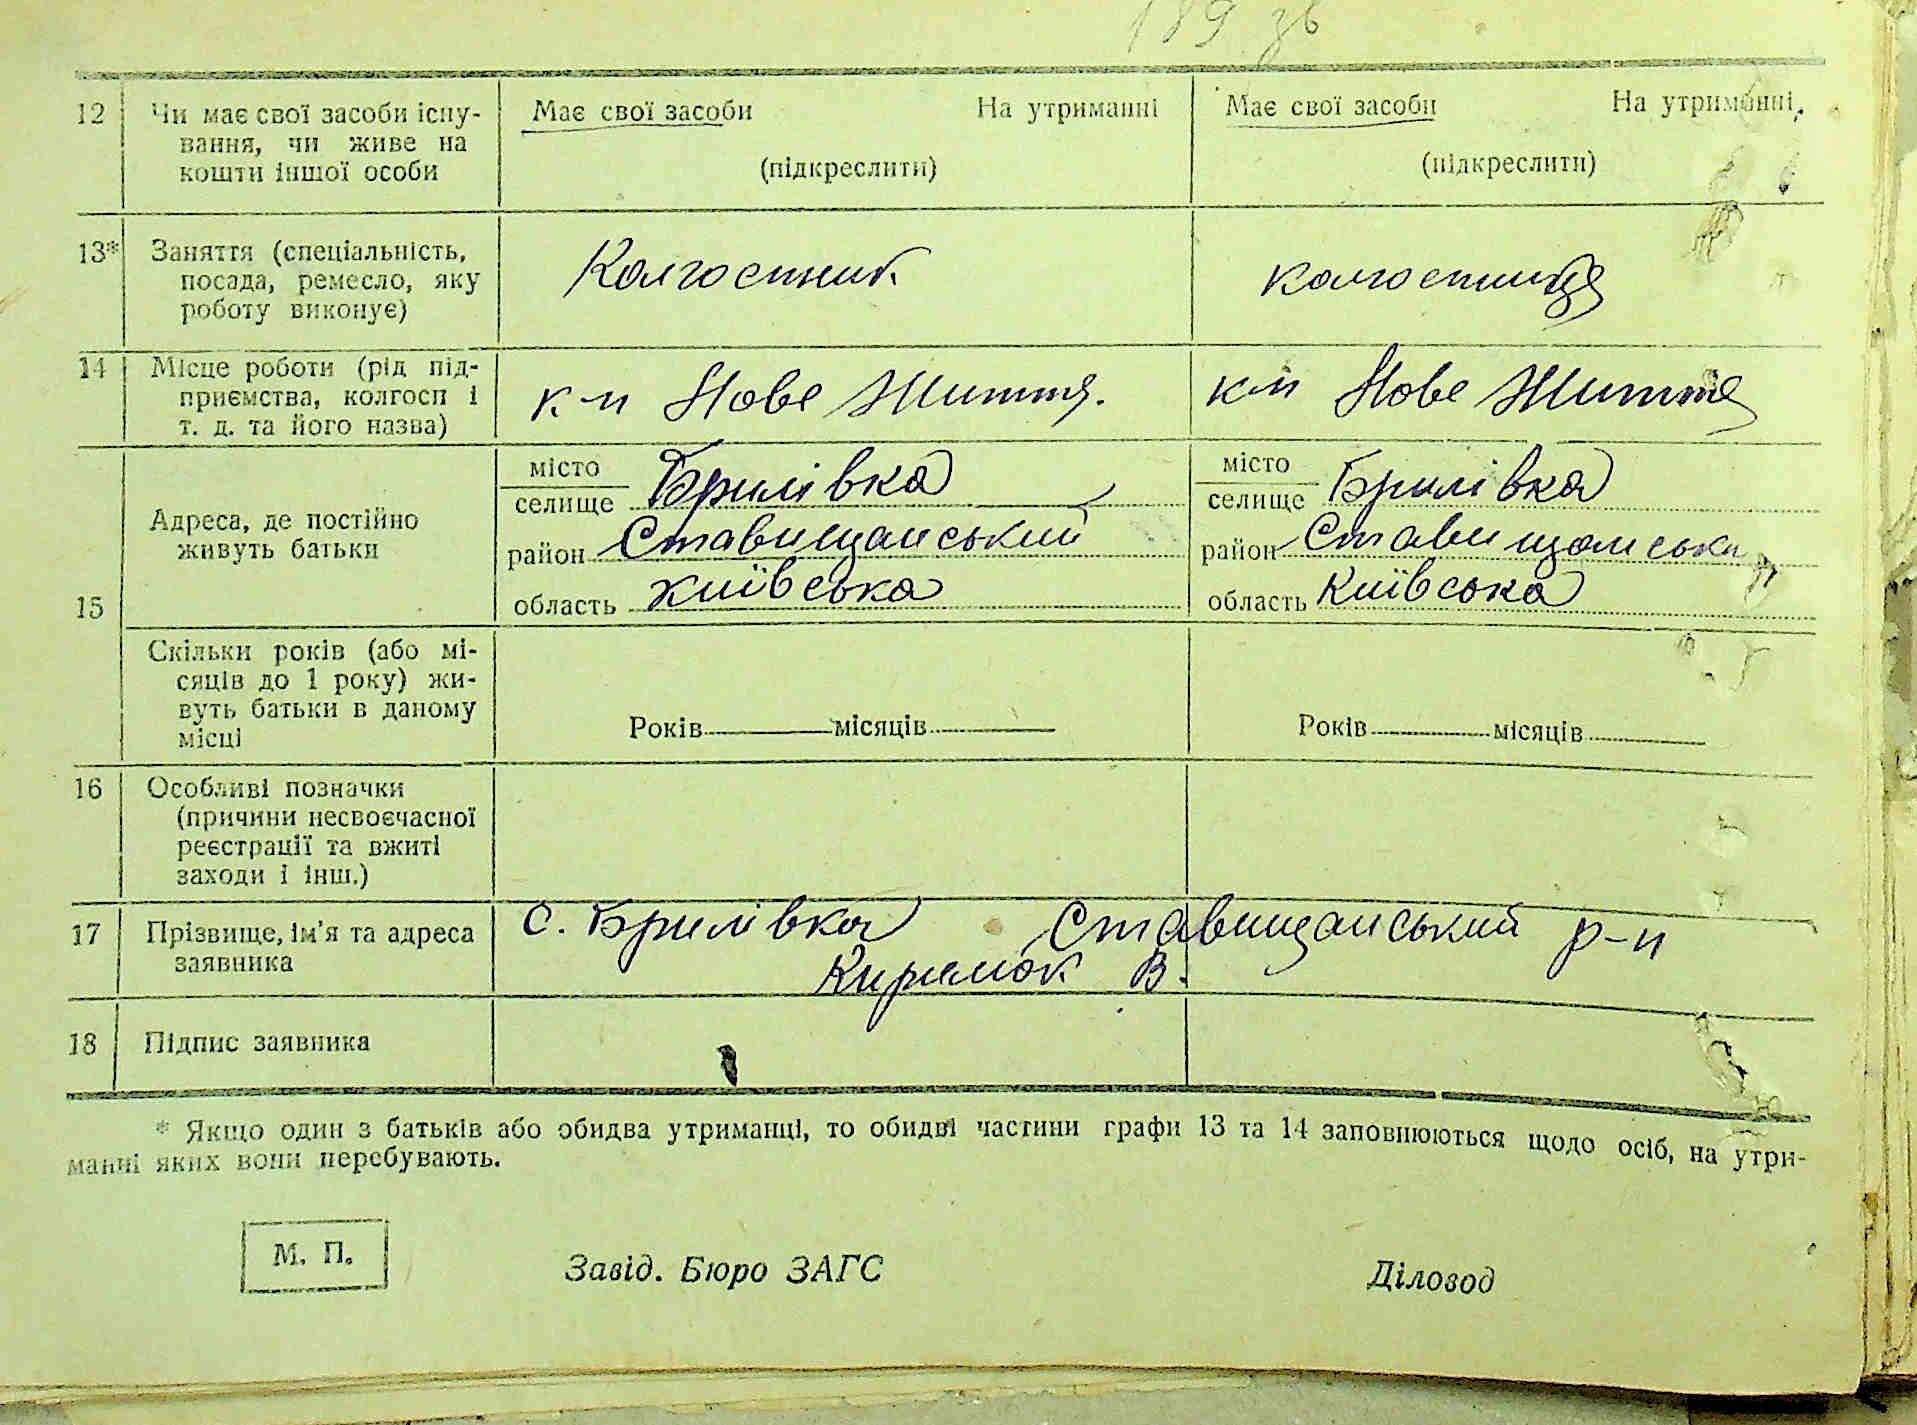 189 зв
12 Чи має свої засоби існу- Має свої засоби На утриманні Має свої засоби На утриманні.
вання, чи живе на
кошти іншої особи (підкреслити) (підкреслити)
13* Заняття (спеціальність,
посада, ремесло, яку Колгоспник колгоспниця
роботу виконує)
14 Місце роботи (рід під-
приємства, колгосп і к-п Нове Життя. к-п Нове Життя
т. д. та його назва)
місто місто
селище Брилівка селище Брилівка
Адреса, де постійно
живуть батьки район Ставищанський район Ставищанськи
15 область київська область Київська
Скільки років (або мі-
сяців до 1 року) жи-
вуть батьки в даному
місці Років місяців Років місяців
16 Особливі позначки
(причини несвоєчасної
реєстрації та вжиті
заходи і інш.)
17 Прізвище, ім'я та адреса с. Брилівка Ставищанський р-н
заявника В.
18 Підпис заявника
* Якщо один з батьків або обидва утриманці, то обидві частини графи 13 та 14 заповнюються щодо осіб, на утри-
манні яких вони перебувають.
М. П. Завід. Бюро ЗАГС Діловод